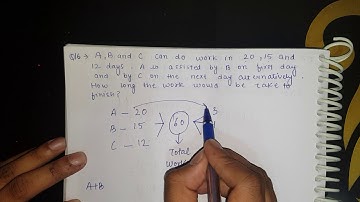 Q16 → A, B and C can do work in 20, 15 and
12 days. A is assisted by B on first day
and by C on the next day alternatively.
How long the work would be take to
finish?
A – 20
B – 15
C – 12
60
3
Total
work
A+B